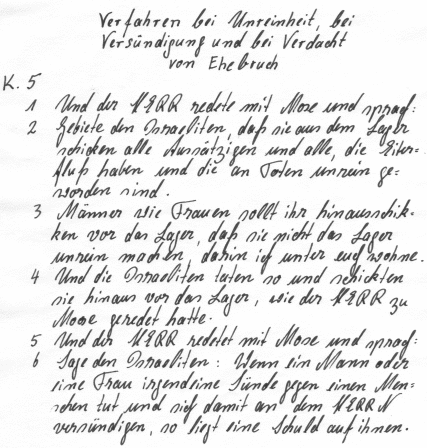 Verfahren bei Unreinheit, bei
Versündigung und bei Verdacht
von Ehebruch
K. 5
1 Und der HERR redete mit Mose und sprach:
2 Gebiete den Israeliten, daß sie aus dem Lager
schicken alle Aussätzigen und alle, die Eiter=
fluß haben und die an Toten unrein ge=
worden sind.
3 Männer wie Frauen sollt ihr hinausschik=
ken vor das Lager, daß sie nicht das Lager
unrein machen, darin ich unter euch wohne.
4 Und die Israeliten taten so und schickten
sie hinaus vor das Lager, wie der HERR zu
Mose geredet hatte.
5 Und der HERR redetet mit Mose und sprach:
6 Sage den Israeliten: Wenn ein Mann oder
eine Frau irgendeine Sünde gegen einen Men=
schen tut und sich damit an dem HERRN
versündigen, so liegt eine Schuld auf ihnen.